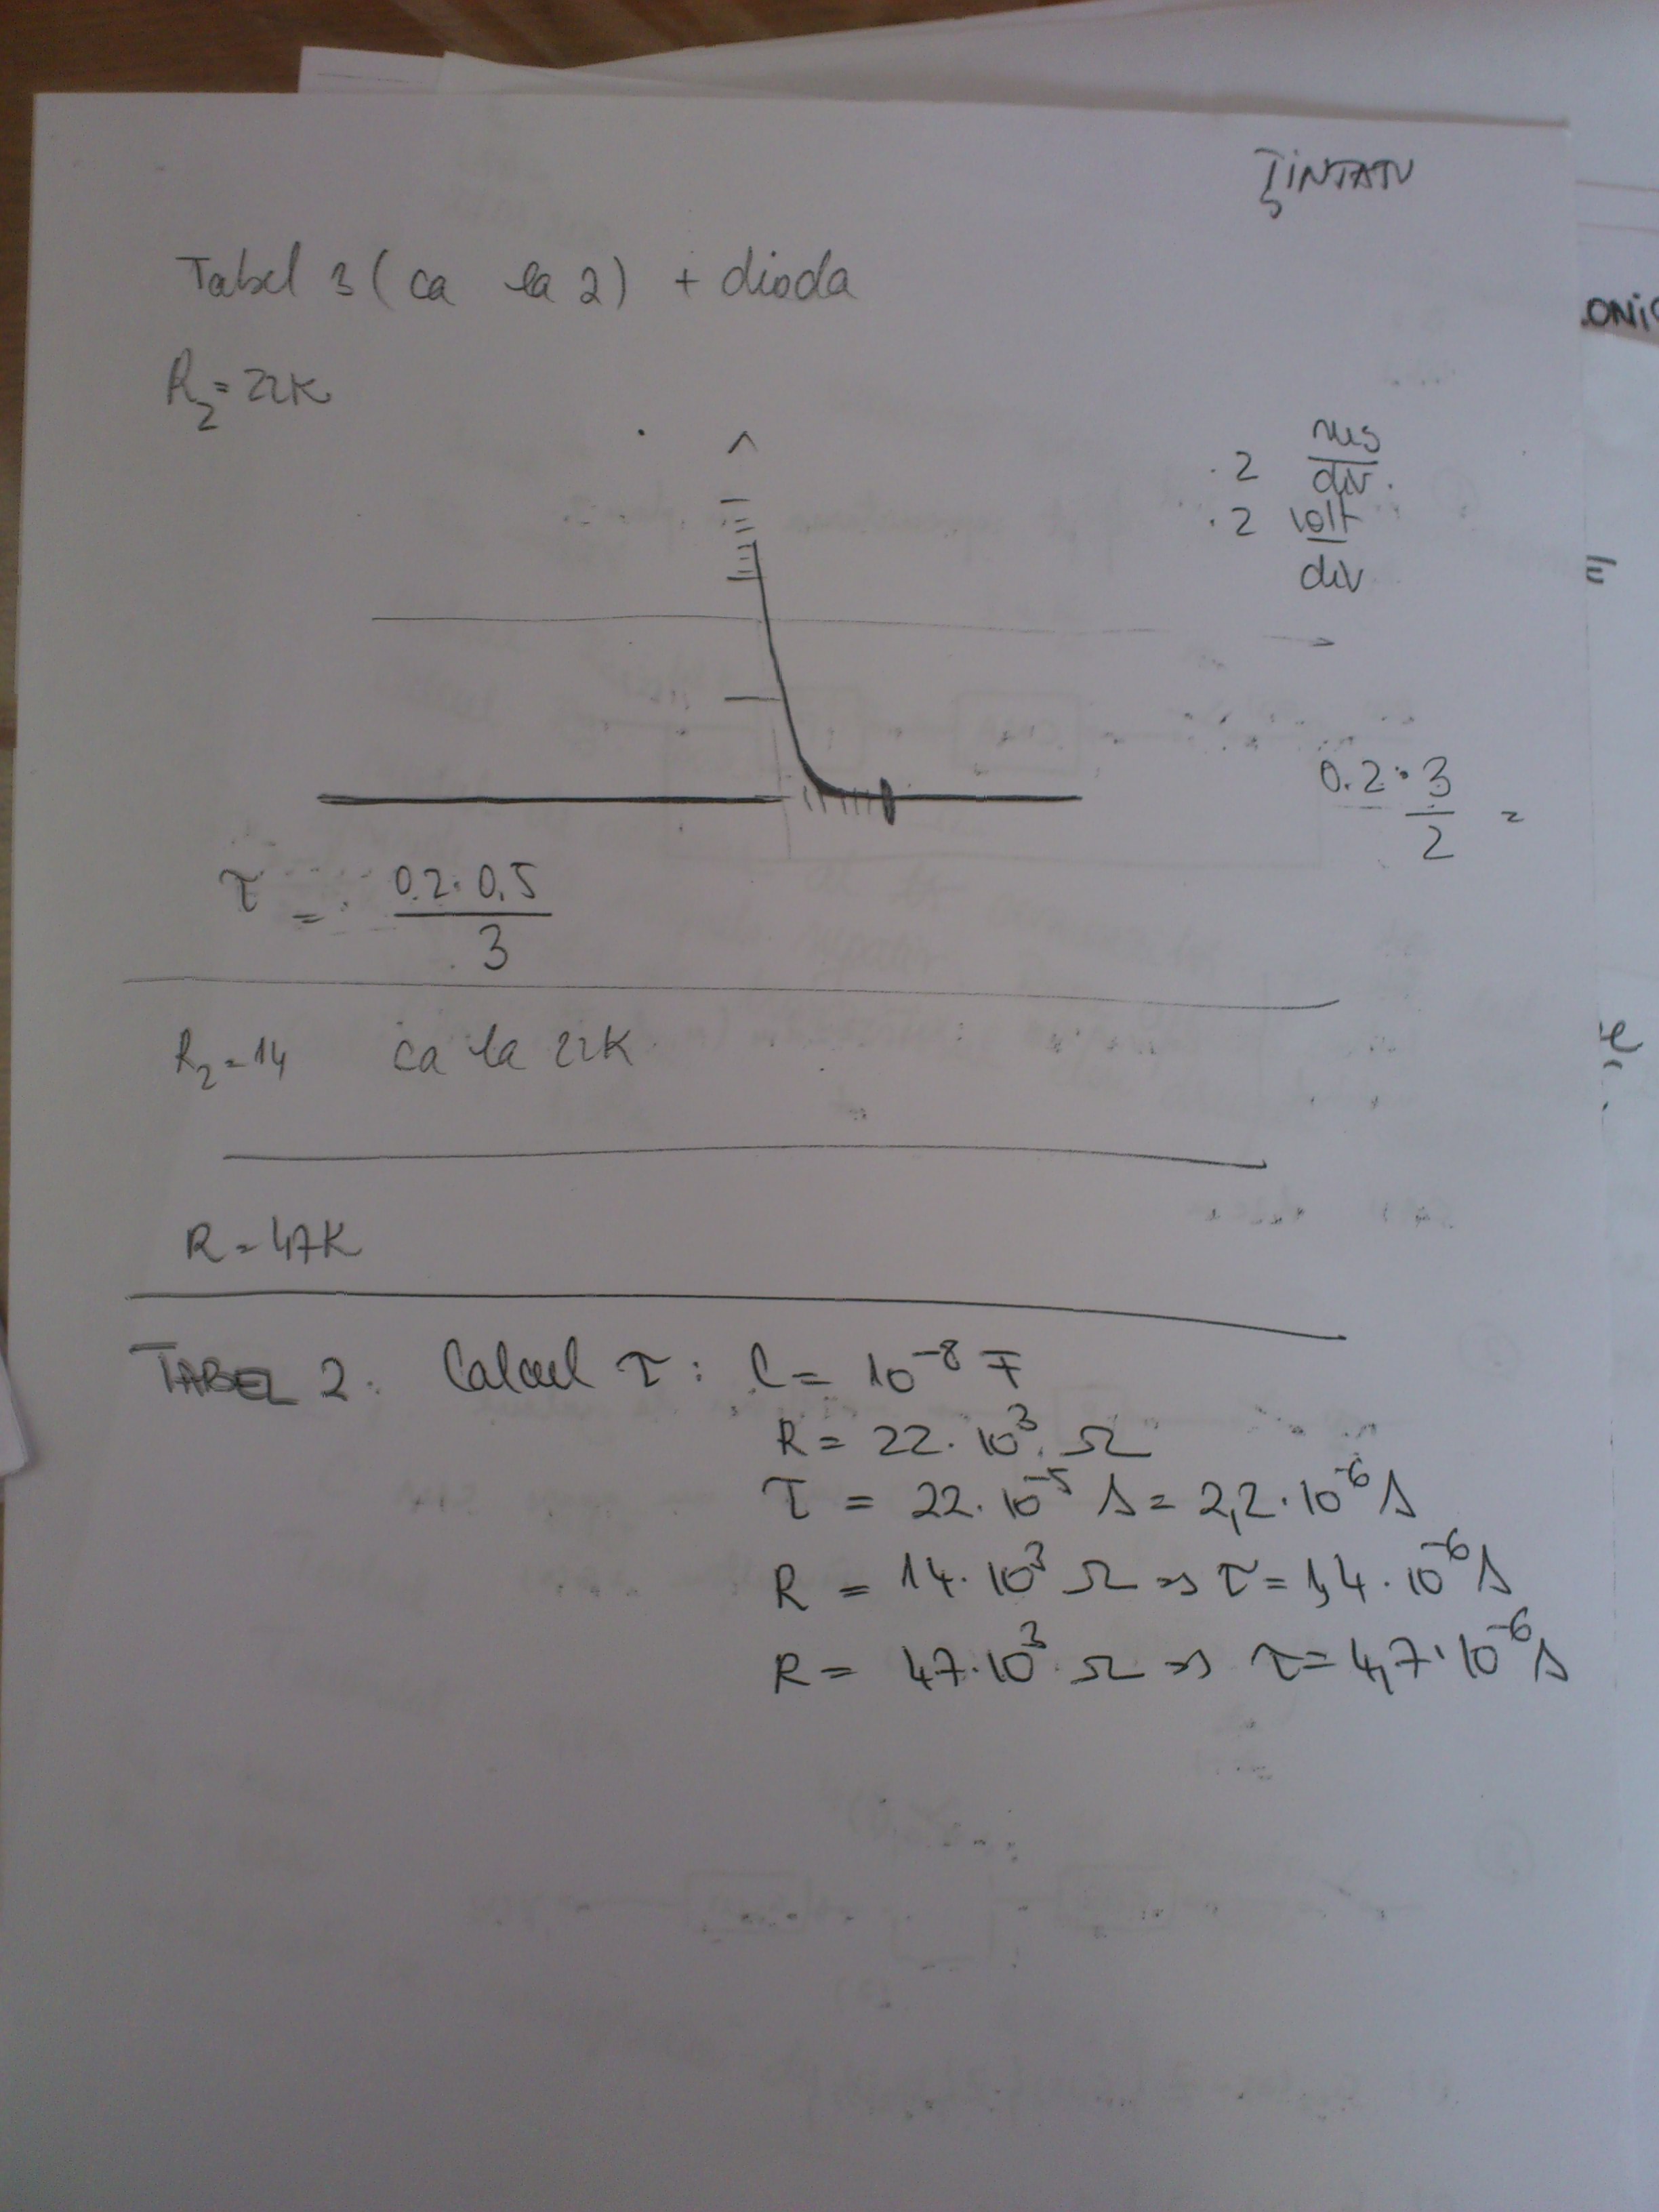 ŢINTATU
Tabel 3 (ca la 2) + dioda
R2 = 22K
.2 ms/div.
.2 volt/div
0.2·3/2 =
τ = 0.2·0,5/3
R2 = 14 ca la 22K
R = 47K
TABEL 2. Calcul τ: C = 10^-8 F
R = 22·10^3 Ω
τ = 22·10^-5 s = 2,2·10^-6 s
R = 14·10^3 Ω ⇒ τ = 1,4·10^-6 s
R = 47·10^3 Ω ⇒ τ = 4,7·10^-6 s
ONi